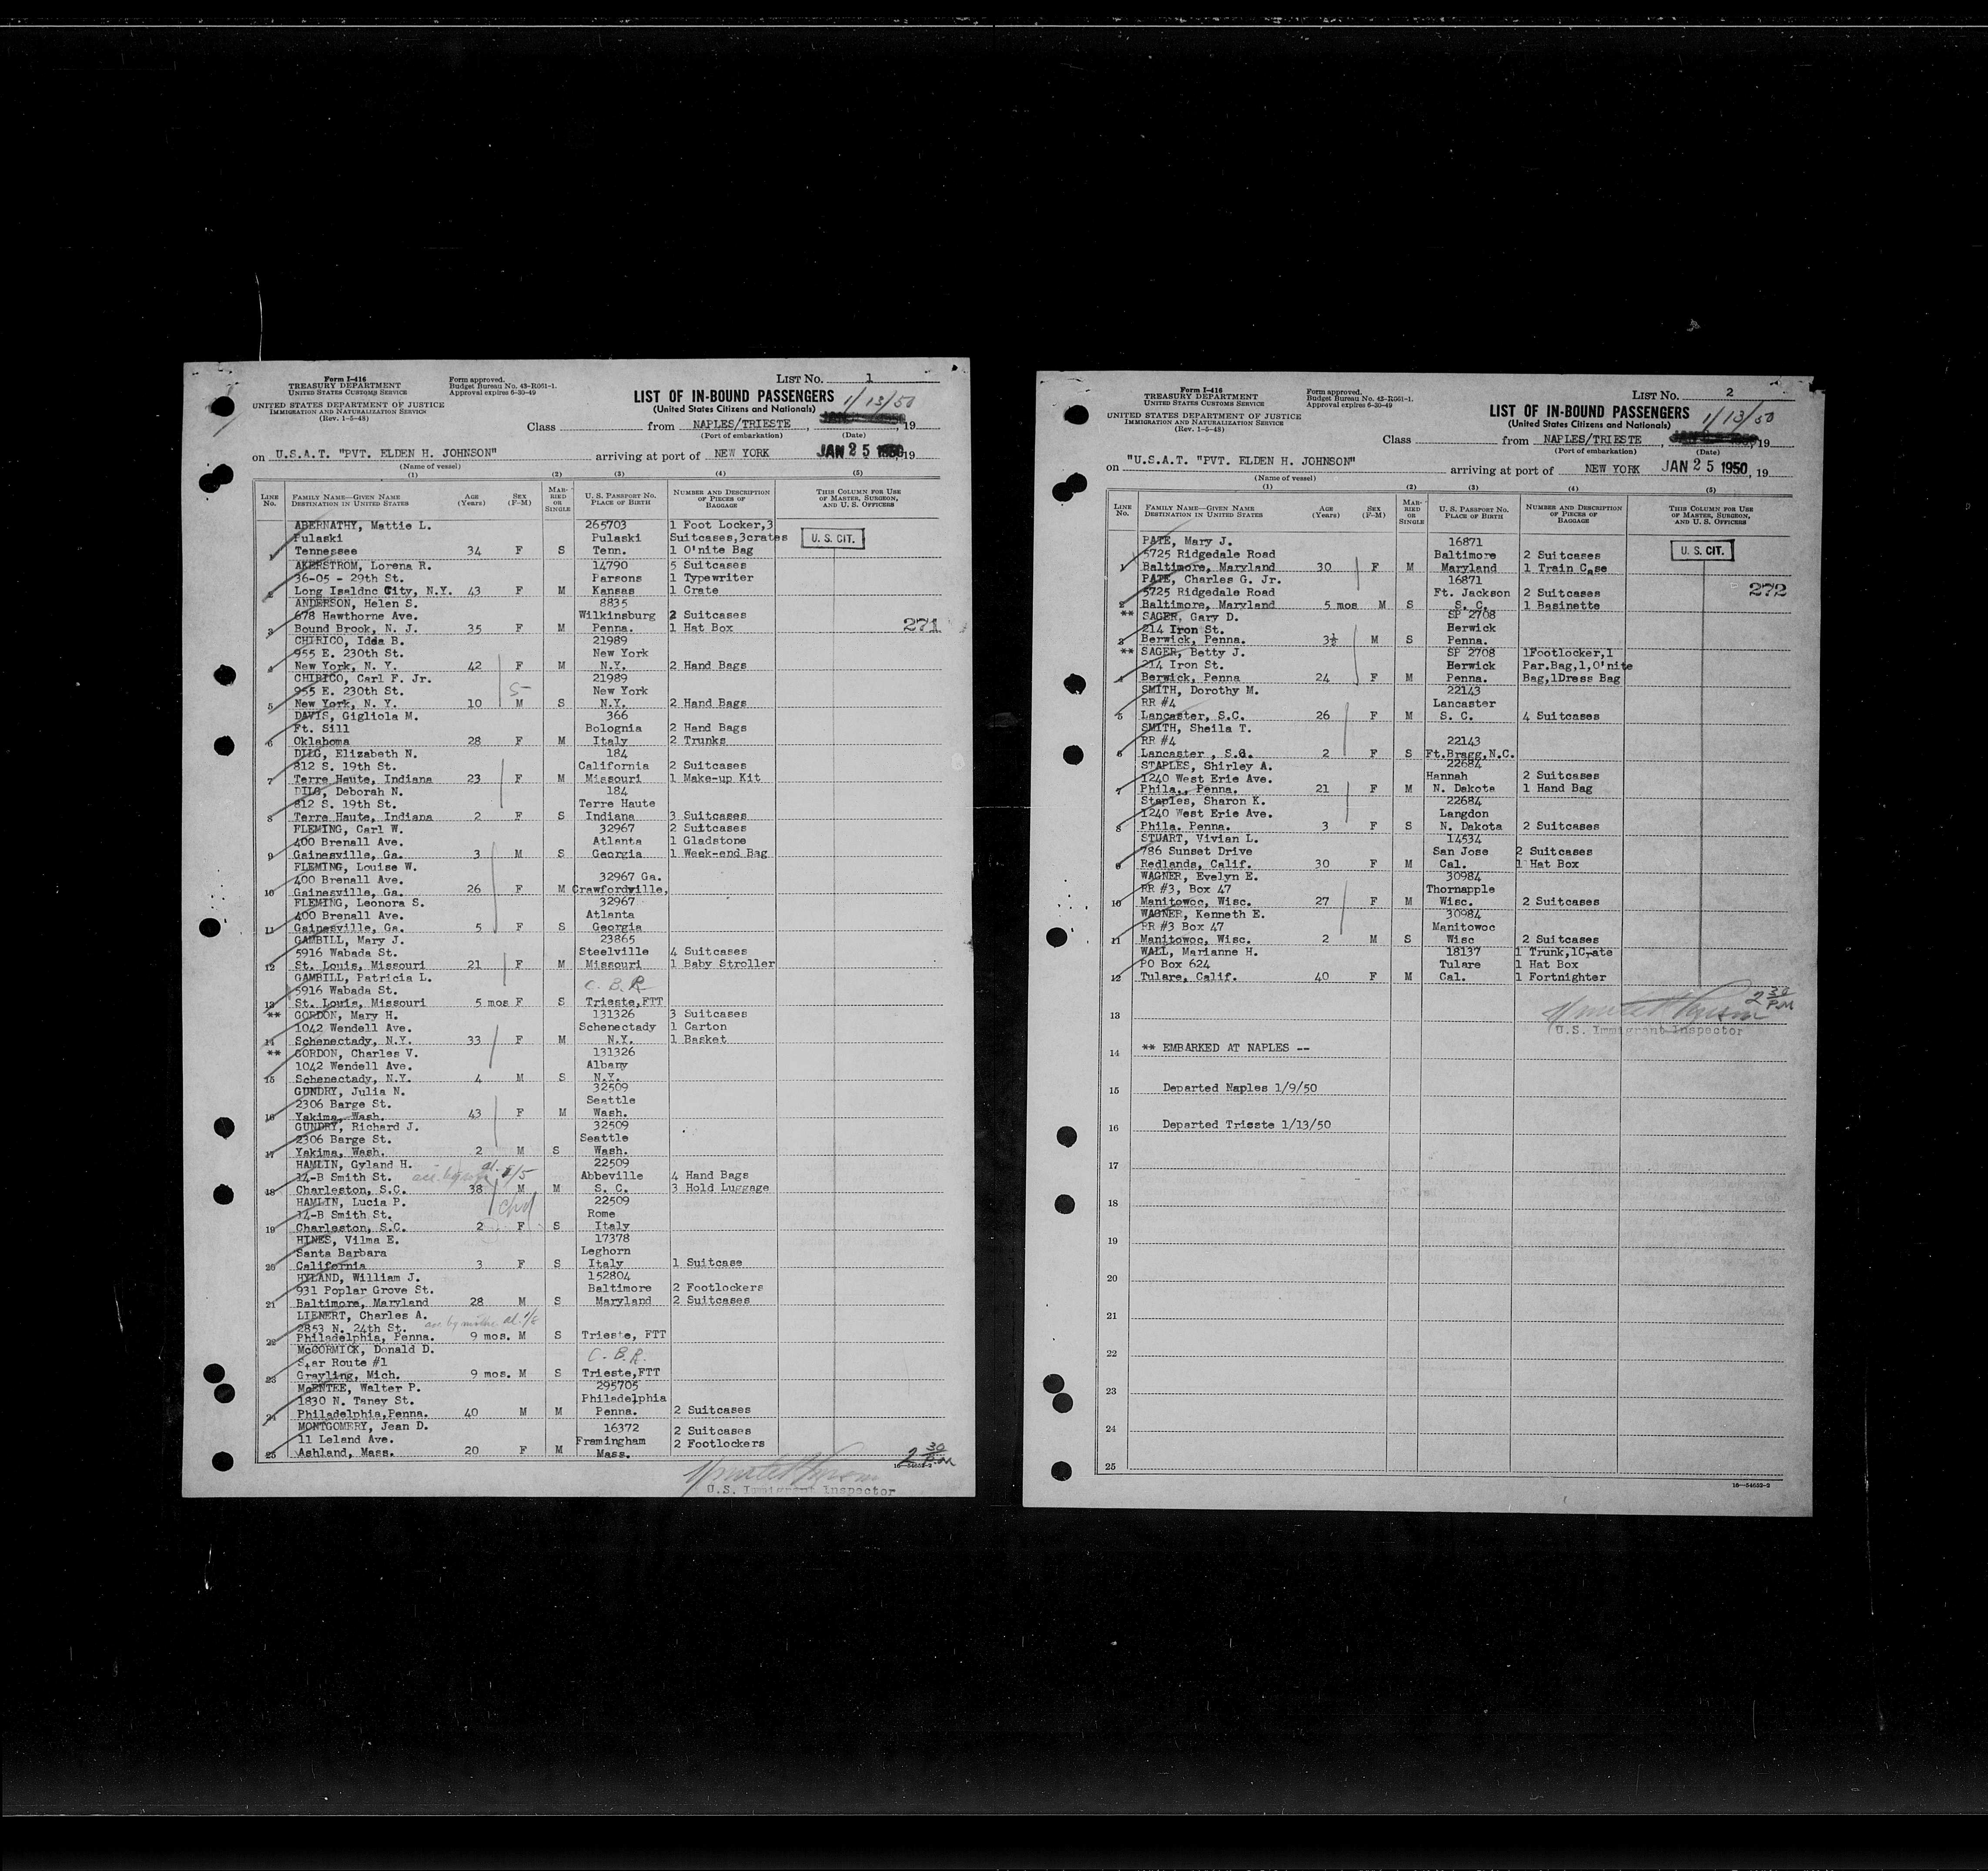 Form I-416
TREASURY DEPARTMENT
UNITED STATES CUSTOMS SERVICE
UNITED STATES DEPARTMENT OF JUSTICE
IMMIGRATION AND NATURALIZATION SERVICE
(Rev. 1-5-48)
Form approved.
Budget Bureau No. 43-R061-1.
Approval expires 6-30-49
LIST NO. 1
LIST OF IN-BOUND PASSENGERS
(United States Citizens and Nationals)
1/13/50
Class from NAPLES/TRIESTE , , 19
(Port of embarkation) (Date)
on U.S.A.T. "PVT. ELDEN H. JOHNSON" arriving at port of NEW YORK JAN 25 1950, 19
(Name of vessel)
(1) (2) (3) (4) (5)
LINE No. FAMILY NAME—GIVEN NAME DESTINATION IN UNITED STATES AGE (Years) SEX (F-M) MARRIED OR SINGLE U. S. PASSPORT NO. PLACE OF BIRTH NUMBER AND DESCRIPTION OF PIECES OF BAGGAGE THIS COLUMN FOR USE OF MASTER, SURGEON, AND U. S. OFFICERS
ABERNATHY, Mattie L. 265703 1 Foot Locker,3
Pulaski Pulaski Suitcases,3crates U. S. CIT.
1 Tennessee 34 F S Tenn. 1 O'nite Bag
AKERSTROM, Lorena R. 14790 5 Suitcases
36-05 - 29th St. Parsons 1 Typewriter
2 Long Isaldnc City, N.Y. 43 F M Kansas 1 Crate
ANDERSON, Helen S. 8835
678 Hawthorne Ave. Wilkinsburg 2 Suitcases
3 Bound Brook, N. J. 35 F M Penna. 1 Hat Box 271
CHIRICO, Idda B. 21989
955 E. 230th St. New York
4 New York, N. Y. 42 F M N.Y. 2 Hand Bags
CHIRICO, Carl F. Jr. 21989
955 E. 230th St. New York
5 New York, N. Y. 10 M S N.Y. 2 Hand Bags
DAVIS, Gigliola M. 366
Ft. Sill Bolognia 2 Hand Bags
6 Oklahoma 28 F M Italy 2 Trunks
DILG, Elizabeth N. 184
812 S. 19th St. California 2 Suitcases
7 Terre Haute, Indiana 23 F M Missouri 1 Make-up Kit
DILG, Deborah N. 184
812 S. 19th St. Terre Haute
8 Terre Haute, Indiana 2 F S Indiana 3 Suitcases
FLEMING, Carl W. 32967 2 Suitcases
400 Brenall Ave. Atlanta 1 Gladstone
9 Gainesville, Ga. 3 M S Georgia 1 Week-end Bag
FLEMING, Louise W.
400 Brenall Ave. 32967 Ga.
10 Gainesville, Ga. 26 F M Crawfordville,
FLEMING, Leonora S. 32967
400 Brenall Ave. Atlanta
11 Gainesville, Ga. 5 F S Georgia
GAMBILL, Mary J. 23865
5916 Wabada St. Steelville 4 Suitcases
12 St. Louis, Missouri 21 F M Missouri 1 Baby Stroller
GAMBILL, Patricia L.
5916 Wabada St. C. B. R.
13 St. Louis, Missouri 5 mos F S Trieste,FTT
** GORDON, Mary H. 131326 3 Suitcases
1042 Wendell Ave. Schenectady 1 Carton
14 Schenectady, N.Y. 33 F M N.Y. 1 Basket
** GORDON, Charles V. 131326
1042 Wendell Ave. Albany
15 Schenectady, N.Y. 4 M S N.Y.
GUNDRY, Julia N. 32509
2306 Barge St. Seattle
16 Yakima, Wash. 43 F M Wash.
GUNDRY, Richard J. 32509
2306 Barge St. Seattle
17 Yakima, Wash. 2 M S Wash.
HAMLIN, Gyland H. 22509
14-B Smith St. Abbeville 4 Hand Bags
18 Charleston, S.C. 38 M M S. C. 3 Hold Luggage
HAMLIN, Lucia P. 22509
14-B Smith St. Rome
19 Charleston, S.C. 2 F S Italy
HINES, Vilma E. 17378
Santa Barbara Leghorn
20 California 3 F S Italy 1 Suitcase
HYLAND, William J. 152804
931 Poplar Grove St. Baltimore 2 Footlockers
21 Baltimore, Maryland 28 M S Maryland 2 Suitcases
LIENERT, Charles A.
2853 N. 24th St.
22 Philadelphia, Penna. 9 mos. M S Trieste, FTT
McCORMICK, Donald D.
Star Route #1 C. B. R.
23 Grayling, Mich. 9 mos. M S Trieste,FTT
McENTEE, Walter P. 295705
1830 N. Taney St. Philadelphia
24 Philadelphia,Penna. 40 M M Penna. 2 Suitcases
MONTGOMERY, Jean D. 16372 2 Suitcases
11 Leland Ave. Framingham 2 Footlockers
25 Ashland, Mass. 20 F M Mass.
2 30 P.M
16—54652-2
U.S. Immigrant Inspector
Form I-416
TREASURY DEPARTMENT
UNITED STATES CUSTOMS SERVICE
UNITED STATES DEPARTMENT OF JUSTICE
IMMIGRATION AND NATURALIZATION SERVICE
(Rev. 1-5-48)
Form approved.
Budget Bureau No. 43-R061-1.
Approval expires 6-30-49
LIST NO. 2
LIST OF IN-BOUND PASSENGERS
(United States Citizens and Nationals)
1/13/50
Class from NAPLES/TRIESTE , , 19
(Port of embarkation) (Date)
on "U.S.A.T. "PVT. ELDEN H. JOHNSON" arriving at port of NEW YORK JAN 25 1950, 19
(Name of vessel)
(1) (2) (3) (4) (5)
LINE No. FAMILY NAME—GIVEN NAME DESTINATION IN UNITED STATES AGE (Years) SEX (F-M) MARRIED OR SINGLE U. S. PASSPORT NO. PLACE OF BIRTH NUMBER AND DESCRIPTION OF PIECES OF BAGGAGE THIS COLUMN FOR USE OF MASTER, SURGEON, AND U. S. OFFICERS
PATE, Mary J. 16871
5725 Ridgedale Road Baltimore 2 Suitcases U. S. CIT.
1 Baltimore, Maryland 30 F M Maryland 1 Train Case
PATE, Charles G. Jr. 16871
5725 Ridgedale Road Ft. Jackson 2 Suitcases 272
2 Baltimore, Maryland 5 mos M S S. C. 1 Basinette
** SAGER, Gary D. SP 2708
214 Iron St. Berwick
3 Berwick, Penna. 3½ M S Penna.
** SAGER, Betty J. SP 2708 1Footlocker,1
214 Iron St. Berwick Par.Bag,1,O'nite
4 Berwick, Penna 24 F M Penna. Bag,1Dress Bag
SMITH, Dorothy M. 22143
RR #4 Lancaster
5 Lancaster, S.C. 26 F M S. C. 4 Suitcases
SMITH, Sheila T.
RR #4 22143
6 Lancaster , S.C. 2 F S Ft.Bragg,N.C.
STAPLES, Shirley A. 22684
1240 West Erie Ave. Hannah 2 Suitcases
7 Phila., Penna. 21 F M N. Dakota 1 Hand Bag
Staples, Sharon K. 22684
1240 West Erie Ave. Langdon
8 Phila. Penna. 3 F S N. Dakota 2 Suitcases
STUART, Vivian L. 14534
786 Sunset Drive San Jose 2 Suitcases
9 Redlands, Calif. 30 F M Cal. 1 Hat Box
WAGNER, Evelyn E. 30984
RR #3, Box 47 Thornapple
10 Manitowoc, Wisc. 27 F M Wisc. 2 Suitcases
WAGNER, Kenneth E. 30984
RR #3 Box 47 Manitowoc
11 Manitowoc, Wisc. 2 M S Wisc 2 Suitcases
WALL, Marianne H. 18137 1 Trunk,1Crate
PO Box 624 Tulare 1 Hat Box
12 Tulare, Calif. 40 F M Cal. 1 Fortnighter
2 30 P.M
13 U.S. Immigrant Inspector
14 ** EMBARKED AT NAPLES --
15 Departed Naples 1/9/50
16 Departed Trieste 1/13/50
17
18
19
20
21
22
23
24
25
16—54652-2